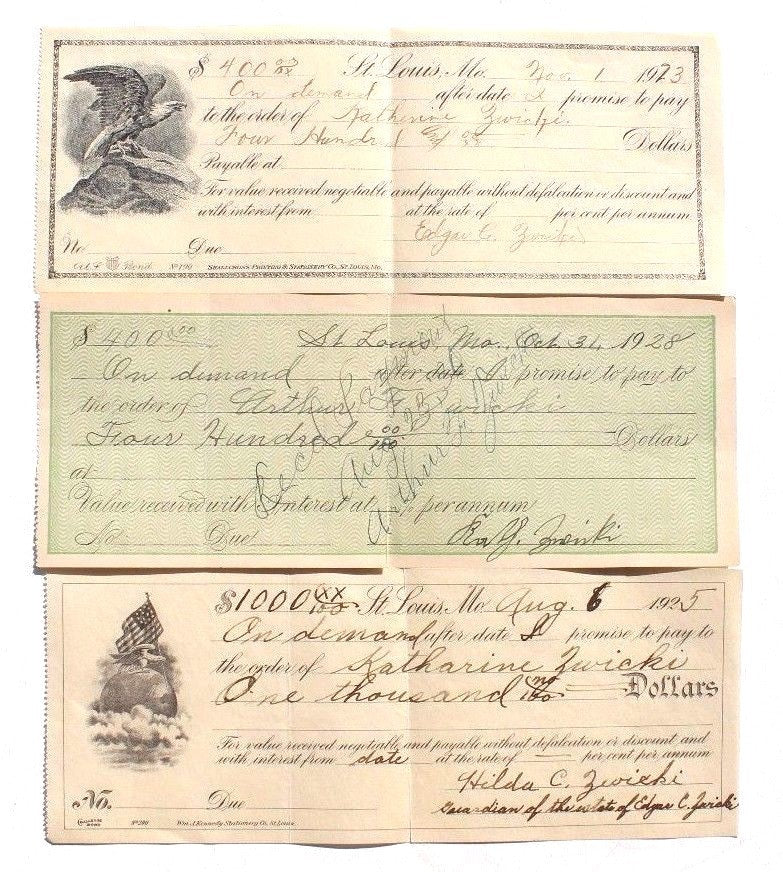 $ 400 00/xx St. Louis, Mo. Nov. 1 1923
On demand after date I promise to pay
to the order of Katherine Zwicki
Four Hundred Dollars
Payable at
For value received negotiable and payable without defalcation or discount and
with interest from at the rate of per cent per annum
Edgar C. Zwicki
No. Due
Bond No 190 SHALLCROSS PRINTING & STATIONERY CO., ST. LOUIS, MO.
$ 400 00/100 St Louis, Mo., Oct. 31, 1928
On demand after date I promise to pay to
the order of Arthur F Zwicki
Four Hundred 00/100 Dollars
at
Value received with Interest at % per annum
No. Due Zwicki
Aug. 23
Arthur F Zwicki
$1000 XX/100 St. Louis, Mo Aug. 6 1925
On demand after date I promise to pay to
the order of Katharine Zwicki
One thousand no/100 Dollars
For value received negotiable and payable without defalcation or discount and
with interest from date at the rate of per cent per annum
Hilda C. Zwicki
Guardian of the estate of Edgar C. Zwicki
No. Due
No 290 Wm. J. Kennedy Stationery Co. St. Louis